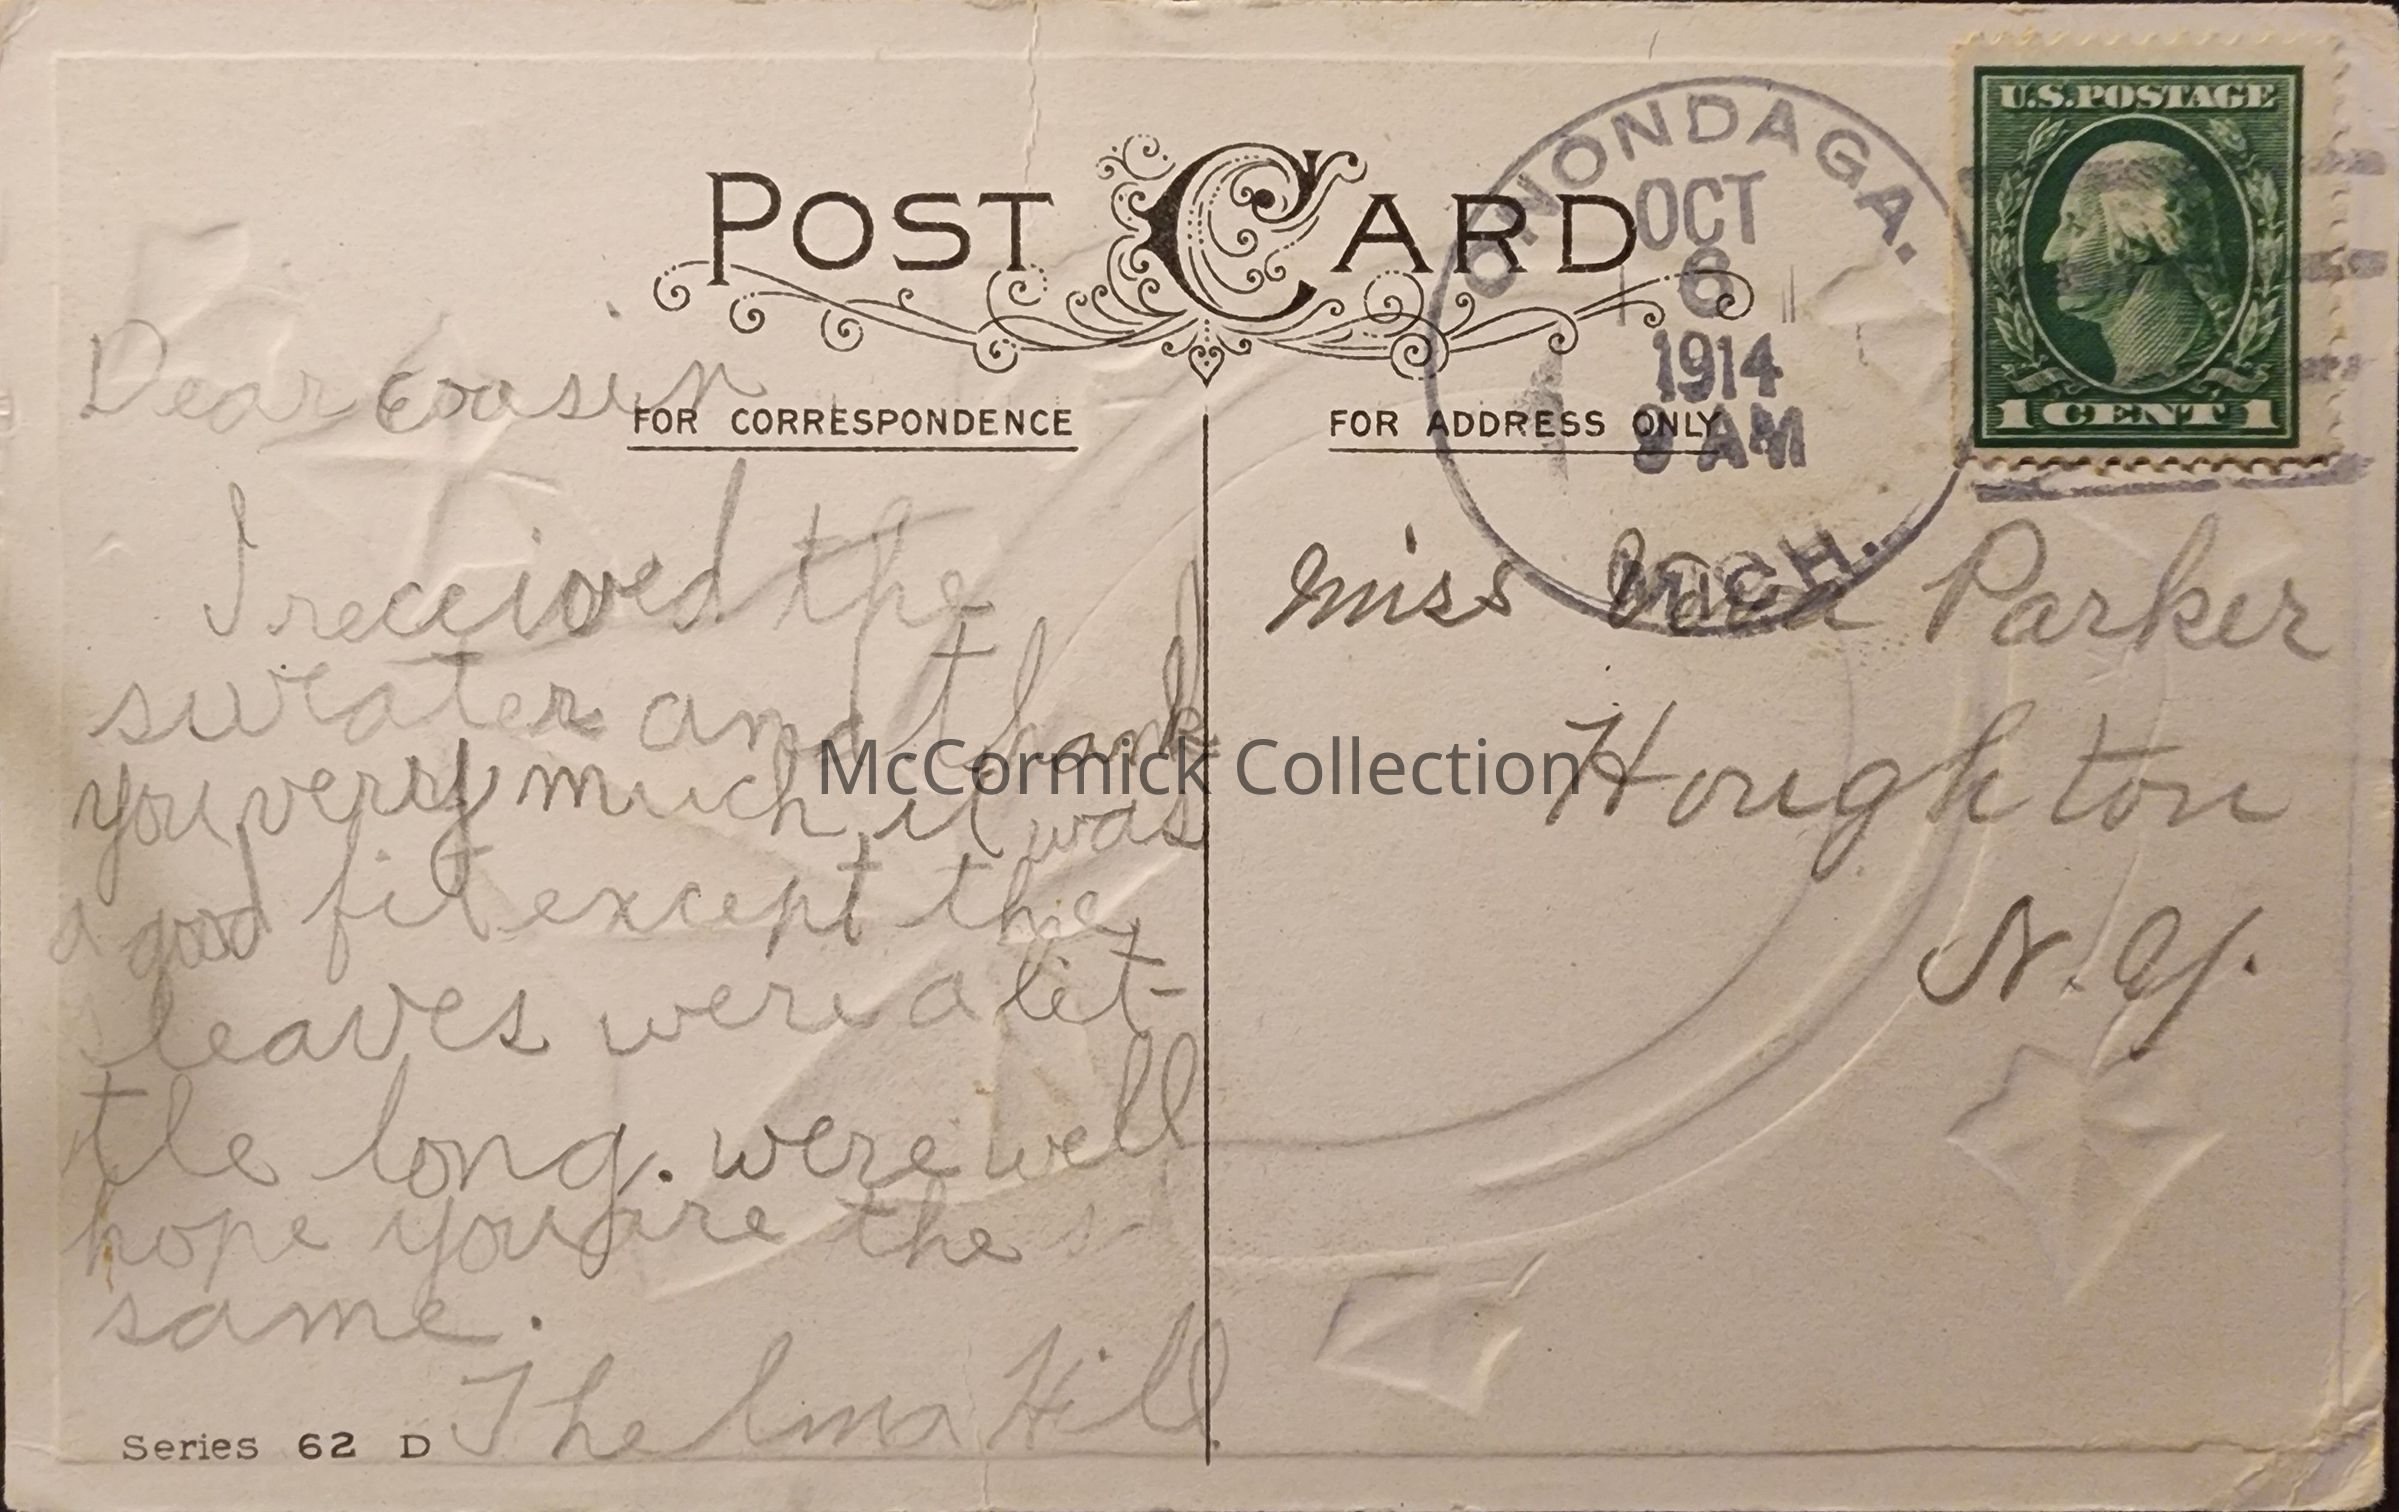 U.S. POSTAGE
1 CENT 1
ONONDAGA.
OCT
6
1914
8 AM
MICH.
POST CARD
FOR CORRESPONDENCE
FOR ADDRESS ONLY
Dear Cousin
I received the
sweater and thank
you very much, it was
a good fit except the
leaves were a lit-
tle long. were well
hope you are the
same.
Thelma Hill.
Miss Parker
Houghton
N.Y.
Series 62 D
McCormick Collection